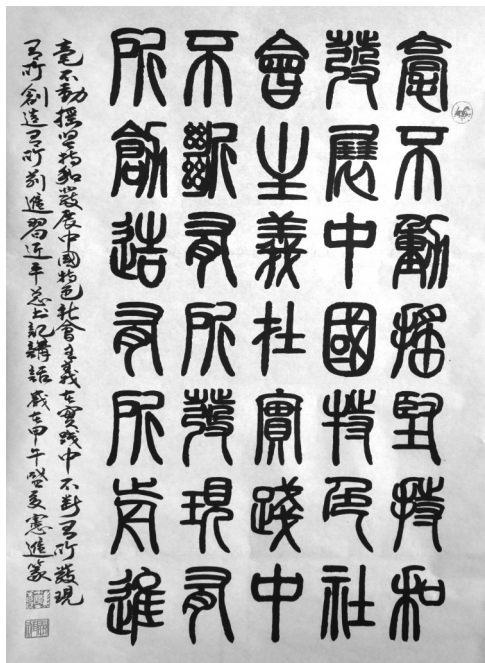 毫不動搖堅持和
發展中國特色社
會主義在實踐中
不斷有所發現有
所創造有所前進
毫不動搖堅持和發展中國特色社會主義在實踐中不斷有所發現
有所創造有所前進習近平總書記講話歲在甲午夏憲進篆